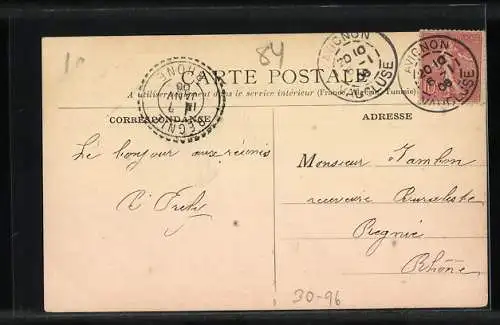 10
84
CARTE POSTALE
A utiliser seulement dans le service intérieur (France, Algérie, Tunisie)
CORRESPONDANCE
ADRESSE
AVIGNON
VAUCLUSE
AVIGNON
VAUCLUSE
REGNIÉ
RHONE
Le bonjour aux réunis
Monsieur Jambon
receveur Buraliste
Regnié
Rhône
30-96